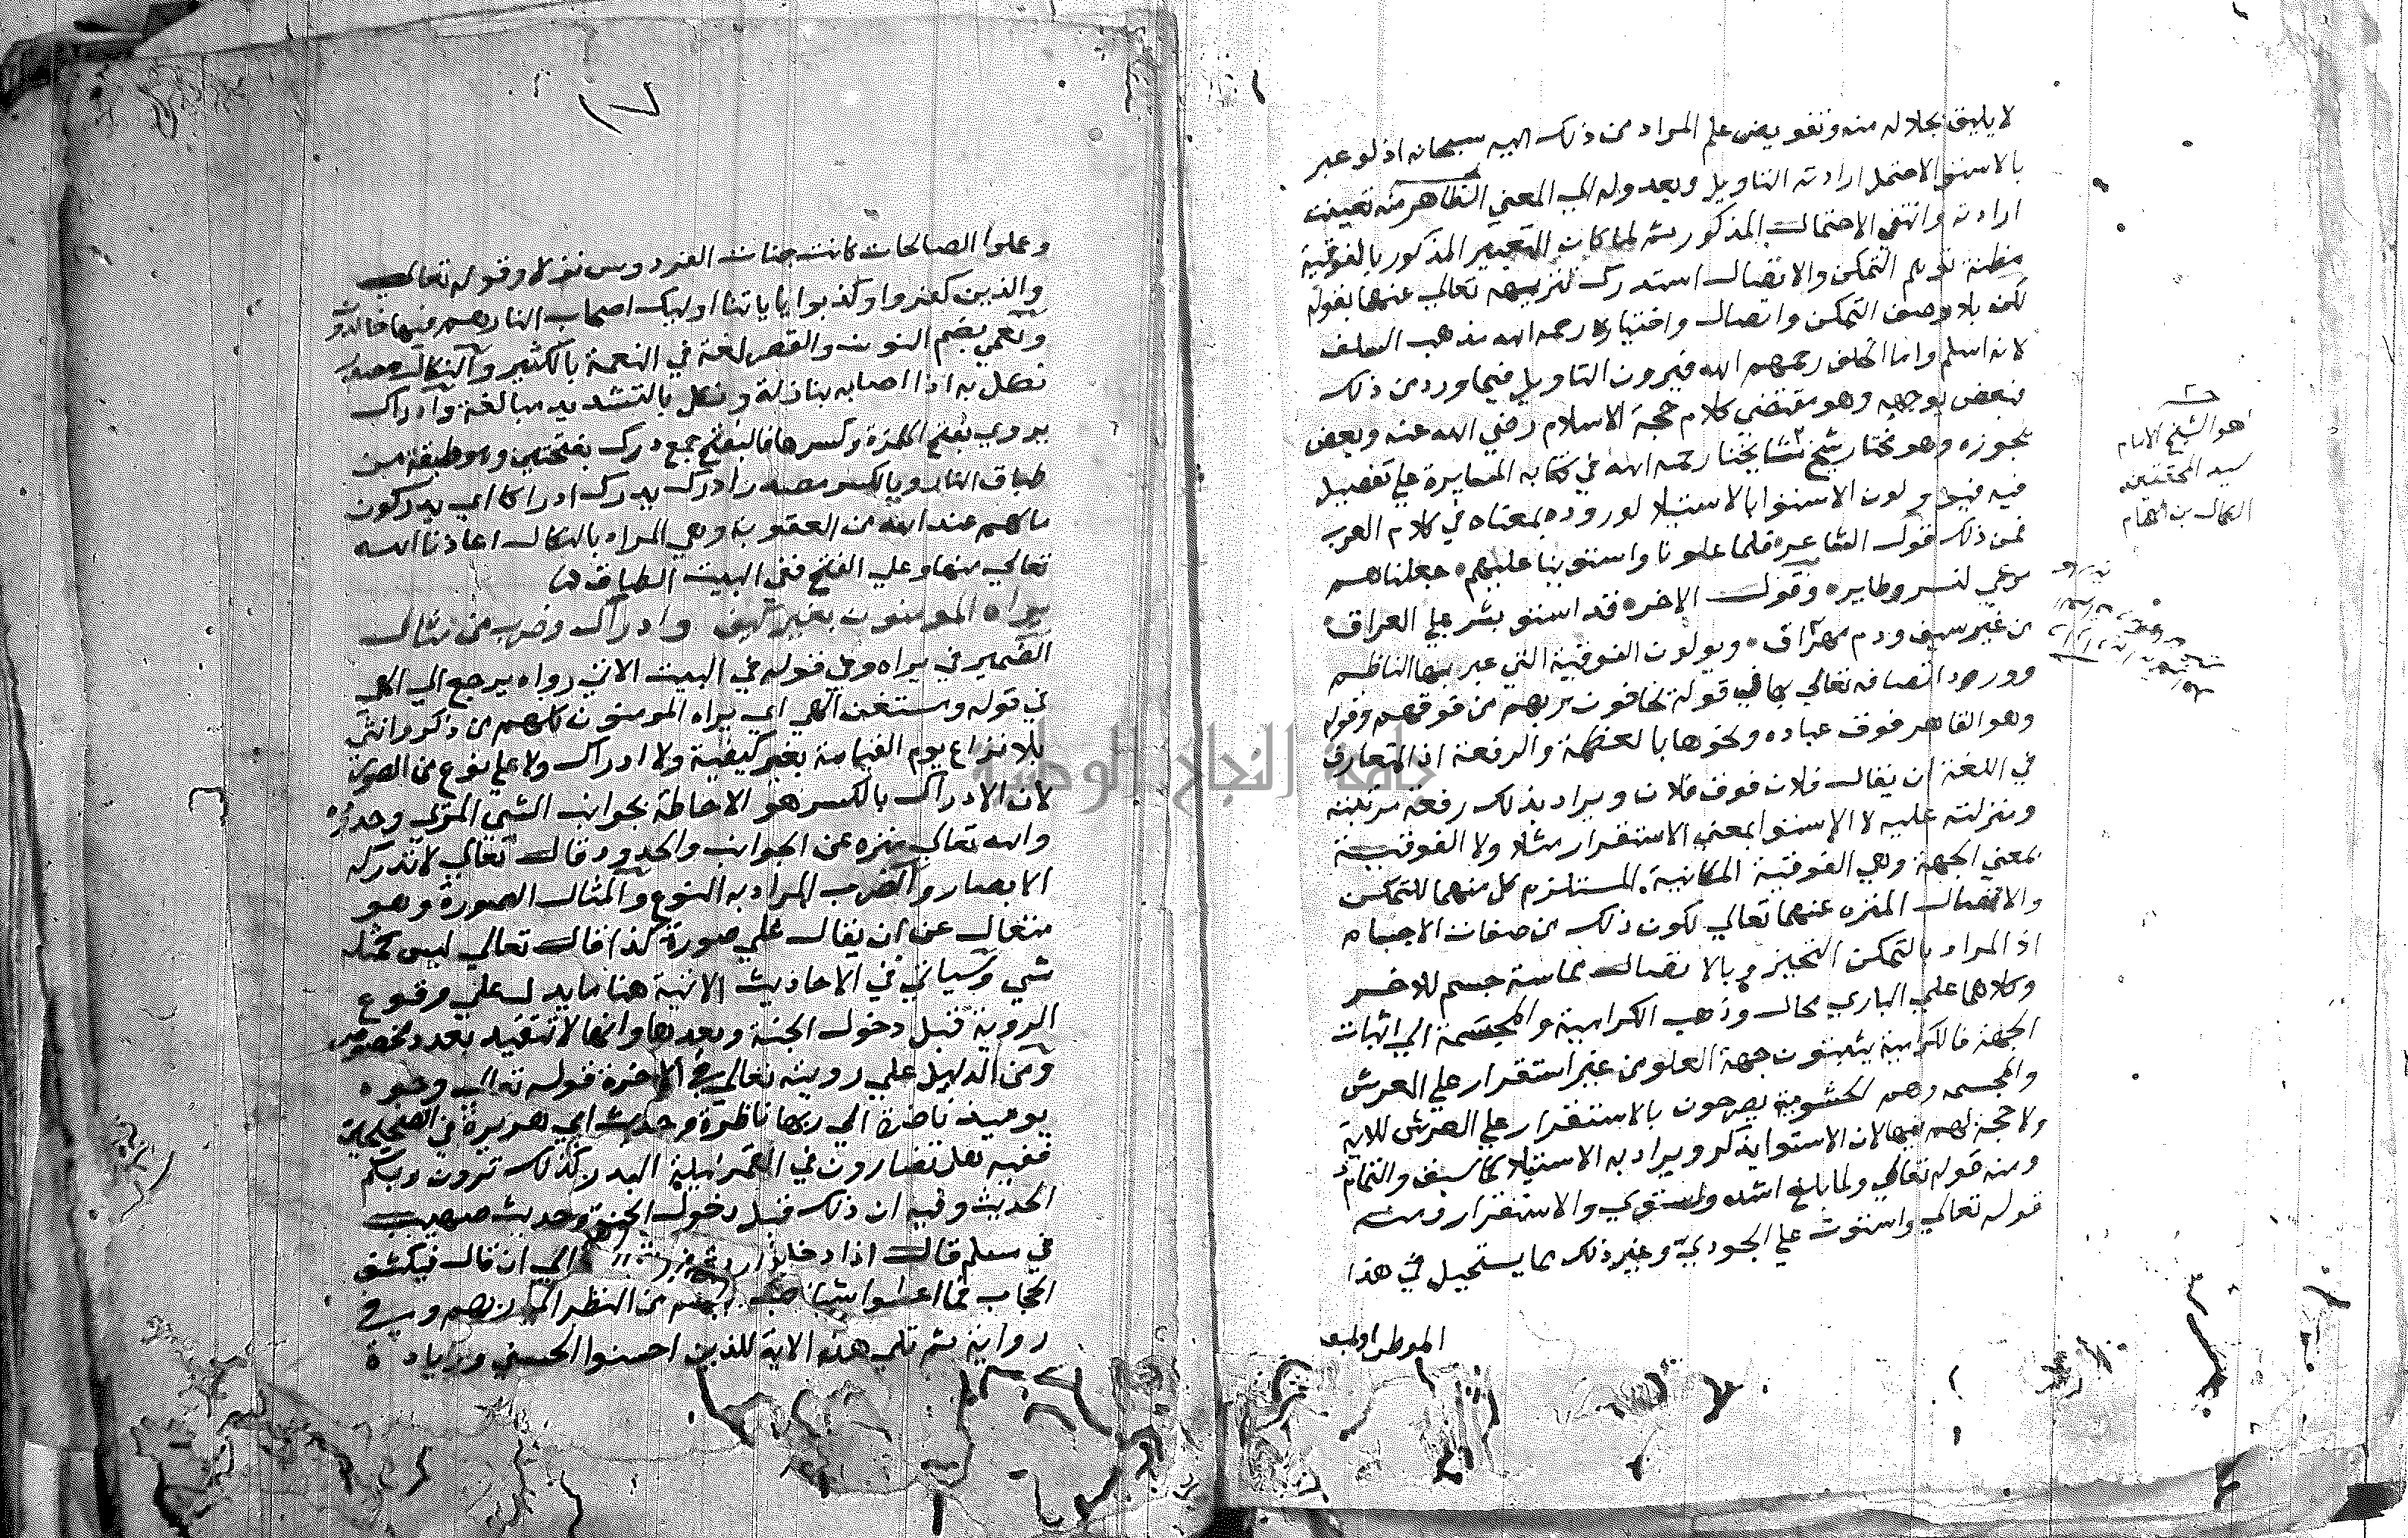 لا يليق بجلاله منه وتفويض علم المراد من ذلك اليه سبحانه اذ لو عبر
بالاستوا لاحتمل ارادته التاويل وبعد وله الي المعني الظاهر منه تعينت
ارادته وانتفي الاحتمال المذكور ثم لما كان التعبير المذكور بالفوقية
مظنة توهم التمكن والاتصال استدرك تنزيهه تعالي عنهما بقوله
لكن بلا وصف التمكن واتصال واختياره رحمه الله مذهب السلف
لانه اسلم واما الخلف رحمهم الله فيرون التاويل فيما ورد من ذلك
فبعض يوجبه وهو مقتضي كلام حجة الاسلام رضي الله عنه وبعض
يجوزه وهو مختار شيخ مشايخنا رحمه الله في كتابه المسايرة علي تفصيل
فيه فيولون الاستوا بالاستيلا لوروده بمعناه في كلام العرب
فمن ذلك قول الشاعر فلما علونا واستوينا عليهم جعلناهم
مرعي لنسر وطايره وقول الاخر قد استو بشر علي العراق
من غير سيف ودم مهراق ويولون الفوقية التي عبر بها الناظم
وورود اتصافه تعالي بها في قوله يخافون ربهم من فوقهم وقوله
وهو القاهر فوق عباده ونحوها بالعظمة والرفعة اذ المتعارف
في اللغة ان يقال فلان فوق فلان ويراد بذلك رفعة مرتبته
ومنزلته عليه لا الاستوا بمعني الاستقرار مثلا ولا الفوقية
بمعني الجهة وهي الفوقية المكانية المستلزم كل منهما للتمكن
والاتصال المنزه عنهما تعالي لكون ذلك من صفات الاجسام
اذ المراد بالتمكن التحيز وبالاتصال مماسة جسم للاخر
وكلاهما علي الباري محال وذهب الكرامية والمجسمة الي اثبات
الجهة فالكرامية يثبتون جهة العلو من غير استقرار علي العرش
والمجسمه وهم الحشوية يصرحون بالاستقرار علي العرش للاية
ولا حجة لهم فيها لان الاستوا يذكر ويراد به الاستيلا كما سبق والتمام
ومنه قوله تعالي ولما بلغ اشده واستوي والاستقرار ومنه
قوله تعالي واستوت علي الجودي وغير ذلك مما يستحيل في هذا
الموطن اوليه
هو الشيخ الامام
سيد المحققين
الكمال بن الهمام
١٧
وعملوا الصالحات كانت جنات الفردوس نزلا وقوله تعالي
والذين كفروا وكذبوا باياتنا اوليك اصحاب النار هم فيها خالدون
ونعمي بضم النون والقصر لغة في النعمة بالكسر والنكال مصدر
نكل به اذا اصابه بنازلة ونكل بالتشديد مبالغة وادراك
يروي بفتح الهمزة وكسرها فالبفتح جمع درك بفتحتين وهو طبقة من
طباق النار وبالكسر مصدر ادرك يدرك ادراكا اي يدركون
ما لهم عند الله من العقوبة وهي المراد بالنكال اعاذنا الله
تعالي منها وعلي الفتح ففي البيت الطباق
يراه المومنون بغير كيف وادراك وضرب من مثال
الضمير في يراه وفي قوله في البيت الاتي رواه يرجع الي الهي
في قوله ومستغن الهي اي يراه المومنون كلهم من ذكر وانثي
بلا نزاع يوم القيامة بغير كيفية ولا ادراك ولا علي نوع من الصور
لان الادراك بالكسر هو الاحاطة بجوانب الشي المري وحدوده
والله تعالي منزه عن الجوانب والحدود قال تعالي لا تدركه
الابصار والضرب المراد به النوع والمثال الصورة وهو
متعال عن ان يقال علي صورة كذا قال تعالي ليس كمثله
شي وسياتي في الاحاديث الاتية هنا ما يدل علي وقوع
الروية قبل دخول الجنة وبعدها وانها لا تتقيد بعدد مخصوص
ومن الدليل علي رويته تعالي في الاخرة قوله تعالي وجوه
يوميذ ناضرة الي ربها ناظرة وحديث ابي هريرة في الصحيحين
ففيه هل تضارون في القمر ليلة البدر كذلك ترون ربكم
الحديث وفيه ان ذلك قبل دخول الجنة وحديث صهيب
في مسلم قال اذا دخل الي ان قال فيكشف
الحجاب فما اعطوا شيا احب اليهم من النظر الي ربهم وفي
رواية ثم تلي هذه الاية للذين احسنوا الحسني وزيادة
جامعة النجاح الوطنية